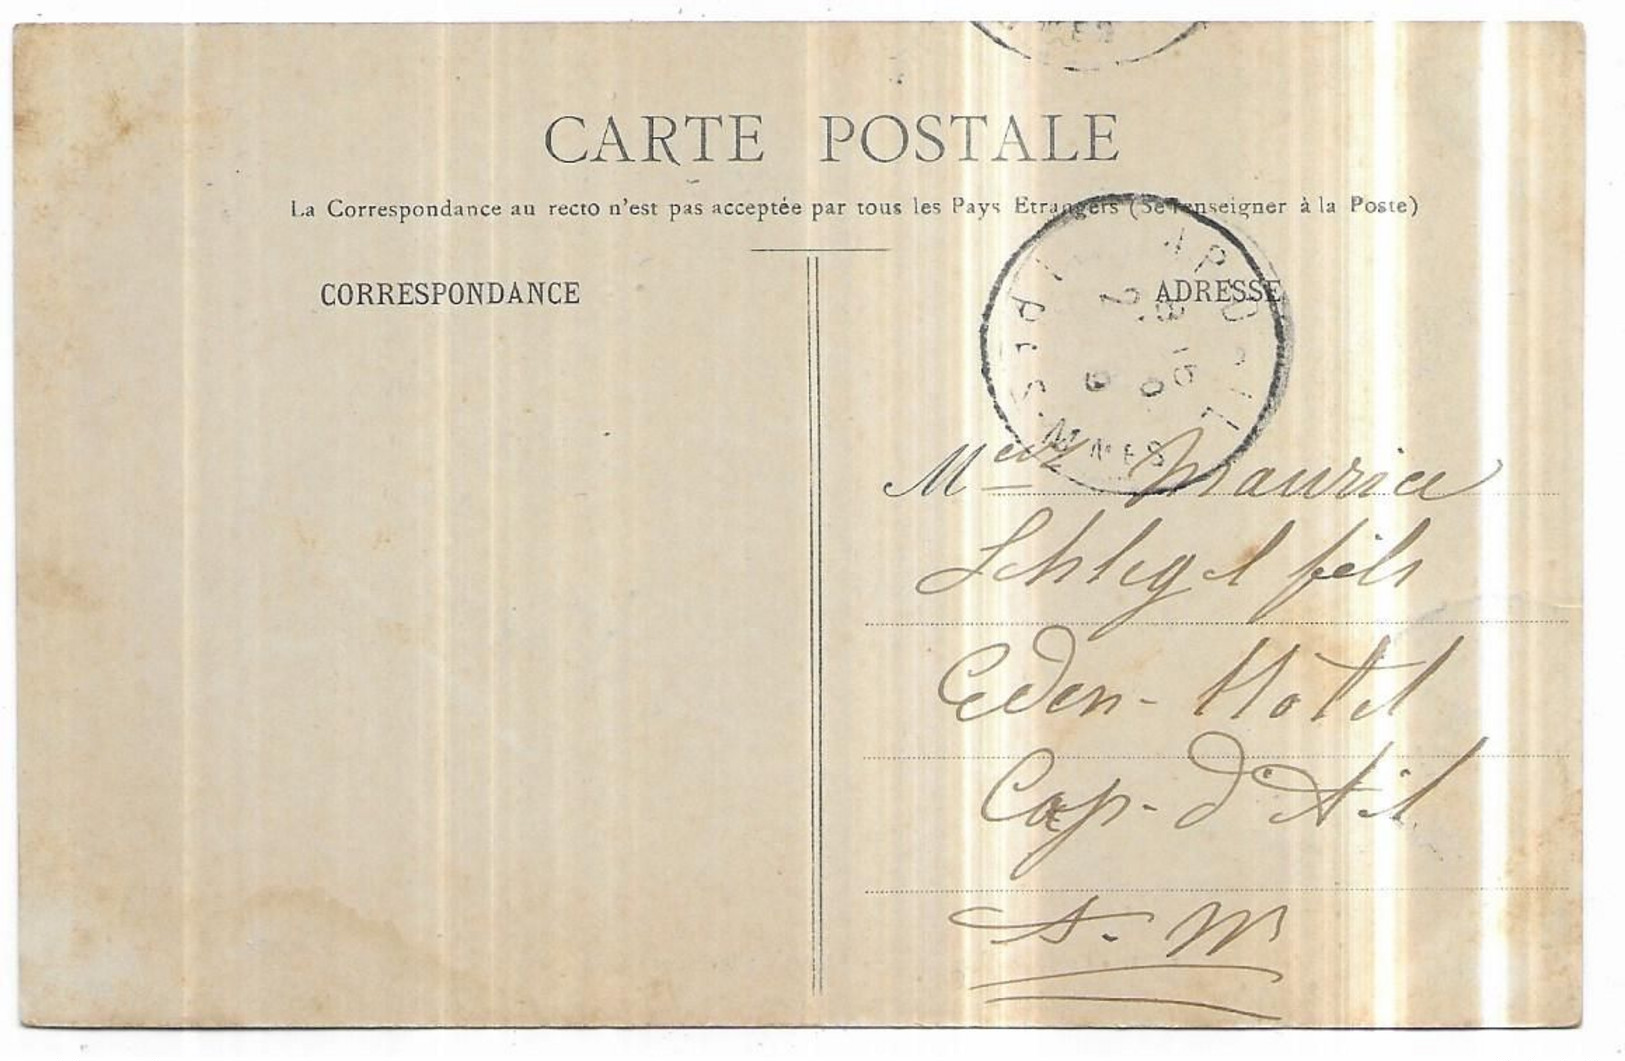 CARTE POSTALE
La Correspondance au recto n'est pas acceptée par tous les Pays Etrangers (Se renseigner à la Poste)
CORRESPONDANCE
ADRESSE
Maurice
Schlegel fils
Eden-Hotel
Cap-d'Ail
A. M